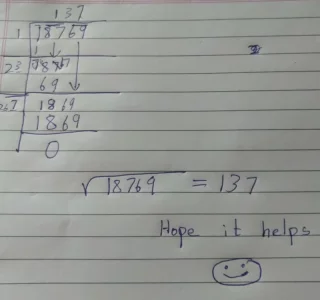 137
1 18769
1
23 87
69
267 1869
1869
0
√18769 = 137
Hope it helps